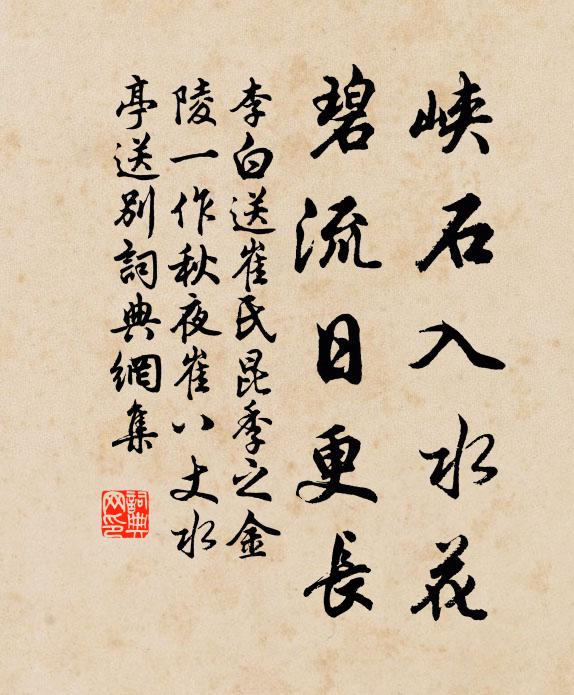 峽石入水花
碧流日更長
李白送崔氏昆季之金
陵一作秋夜崔八丈水
亭送別詞典網集
詞典
网印